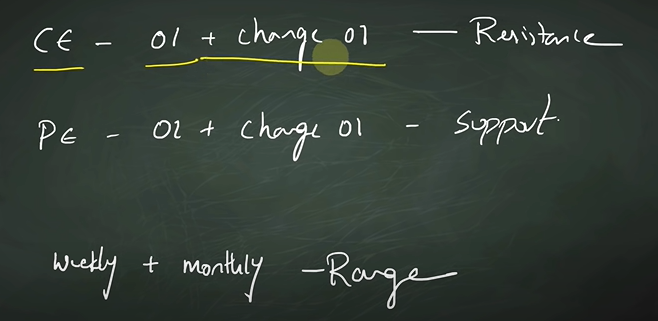 CE - OI + change OI - Resistance
PE - OI + change OI - support.
weekly + monthly - Range